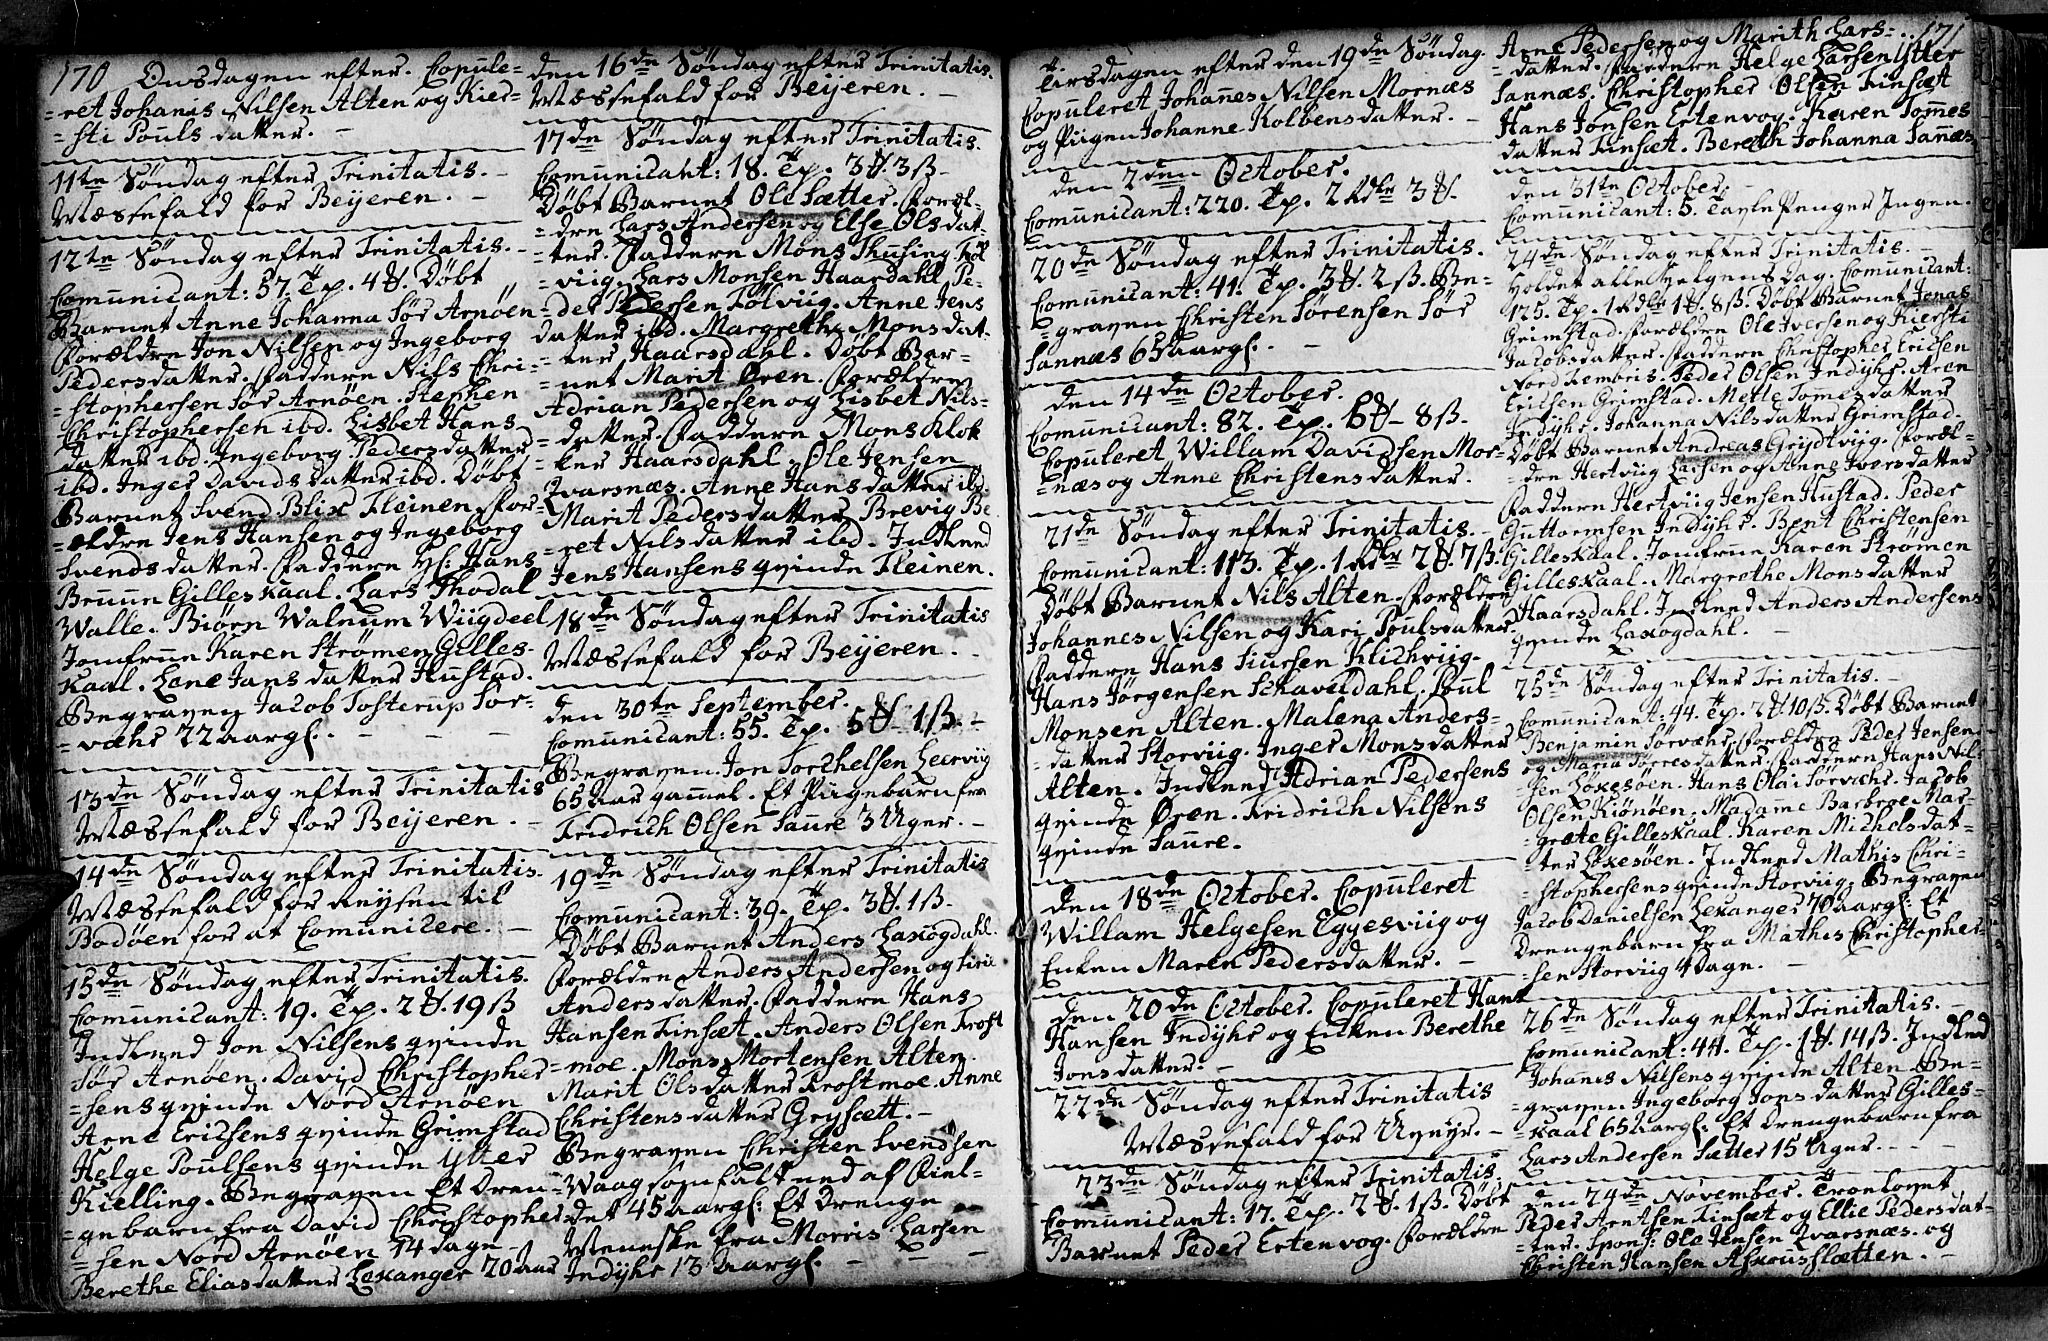 170 Onsdagen efter. Copule=
=ret Johanis Nilsen Alten og Kier=
=sti Pouls datter. –
11te Søndag efter Trinitatis. –
Mæssefald for Beijeren. –
12te Søndag efter Trinitatis. –
Comunicant: 57. Tp. 4 ₰. Døbt
Barnet Anne Johanna Sør Arnøen
Forældre Jon Nilsen og Ingeborg
Pedersdatter. Faddere Nils Chri=
=stophersen Sør Arnøen. Stephen
Christophersen ibd. Lisbet Hans
datter ibd. Ingeborg Pedersdatter
ibd. Inger Davids datter ibd. Døbt
Barnet Svend Blix Fleinen. For=
=ældre Jens Hansen og Ingeborg
Svends datter. Faddere Hr: Hans
Bruun Gilleskaal. Lars Thodal
Walle. Biørn Walnum Wiigdeel
Jomfrue Karen Strømen Gilles-
kaal. Lene Jans datter Hustad.
Begraven Jacob Tosterup Sør=
=væhr 22 aargl. –
13de Søndag efter Trinitatis
Mæssefald for Beijeren. –
14de Søndag efter Trinitatis.
Mæssefald for Reysen til
Bodøen for at Comunicere. –
15de Søndag efter Trinitatis.
Comunicant: 19. Tp. 2 ₰. 19 ß
Indleed Jon Nilsens qvinde
Sør Arnøen. David Christopher
=sens qvinde Nord Arnøen
Arne Ericsens qvinde Grimstad
Helge Poulsens qvinde Ytter
Kielling. Begraven Et Dren=
=gebarn fra David Christopher
=sen Nord Arnøen 14 dage –
Berethe Eliasdatter Lexanger 20 aar
den 16de Søndag efter Trinitatis.
Mæssefald for Beijeren. –
17de Søndag efter Trinitatis.
Comunicant: 18. Tp. 3 ₰. 3 ß –
Døbt Barnet Ole Sætter. Foræl=
=dre Lars Andersen og Else Ols dat=
=ter. Faddere Mons Thusing Føl
=viig. Lars Monsen Haarsdahl Pe=
=der Pedersen Følviig. Anne Jens
datter ibd. Margrethe Mons dat=
=ter Haarsdahl. Døbt Bar=
=net Marit Øren. Forældre
Adrian Pedersen og Lisbet Nils=
=datter. Faddere Mons Klok
=ker Haarsdahl. Ole Jensen
Ivarsnæs. Anne Hans datter ibd.
Marit Pedersdatter Brevig Be
=ret Nils datter ibd. Indleed
Jens Hansens qvinde Fleinen.
18de Søndag efter Trinitatis
Mæssefald for Beijeren. –
den 30te September.
Comunicant: 55. Tp. 5 ₰ 1 ß. –
Begraven Jon Torchelsen Leerviig
65 aar gammel. Et Pigebarn fra
Fridrich Olsen Saure 3 Uger. –
19de Søndag efter Trinitatis
Comunicant: 39. Tp. 3 ₰. 1 ß.
Døbt Barnet Anders Laxøgdahl.
Forældre Anders Andersen og Siri
Anders datter. Faddere Hans
Hansen Finsæt. Anders Olsen Trost
=moe. Mons Mortensen Alten.
Marit Ols datter Trostmoe. Anne
Christens datter Grysætt. –
Begraven Christen Svendsen
Waag som falt ned af Fiel=
=det 45 aargl: Et Drenge
Menneske fra Morris Larsen
Indyhr 13 aargl. –
Tirsdagen efter den 19de Søndag
Copuleret Johannes Nilsen Mornæs
og Pigen Johanne Kolbensdatter. –
den 2den October.
Comunicant: 220. Tp. 2 Rdlr 3 ₰.
20de Søndag efter Trinitatis.
Comunicant: 41. Tp. 3 ₰. 2 ß. Be=
=graven Christen Sørensen Sør
Sannæs 65 aargl. –
den 14de October.
Comunicant: 82. Tp. 5 ₰ – 8 ß.
Copuleret Willam Davidsen Mor=
=næs og Anne Christens datter.
21de Søndag efter Trinitatis. –
Comunicant: 113. Tp. 1 Rdlr 2 ₰. 7 ß.
Døbt Barnet Nils Alten. Forældre
Johannes Nilsen og Kari Poulsdatter
Faddere Hans Siursen Klichviig.
Hans Jørgensen Schaveldahl. Poul
Monsen Alten. Malena Anders=
=datter Storviig. Inger Mons datter
Alten. Indleed Adrian Pedersens
qvinde Øren. Fridrich Nilsens
qvinde Saure.
den 18de October. Copuleret
Willam Helgesen Eggesviig og
Enken Maren Pedersdatter. –
den 20de October. Copuleret Hans
Hansen Indyhr og Enken Berethe
Jonsdatter. –
22de Søndag efter Trinitatis
Mæssefald for Uveyr. –
23de Søndag efter Trinitatis.
Comunicant: 17. Tp. 2 ₰. 1 ß. Døbt
Barnet Peder Ertenvog. Forældre
Arne Pedersen og Marith Lars= 171
=datter. Faddere Helge Larsen Ytter
Sannæs. Christopher Olsen Finsæt
Hans Jonsen Ertenvog. Karen Tommes
datter Finsæt. Bereth Johanna Sannæs
den 31te October. –
Comunicant: 5. Tavle Penger Ingen.
24de Søndag efter Trinitatis. –
Holdet alle Helgens dag. Comunicant:
125. Tp. 1 Rdlr 1 ₰. 8 ß. Døbt Barnet Jonas
Grimstad. Forældre Ole Iversen og Kiersti
Jacobsdatter. Faddere Christopher Ericsen
Nord Fembris. Peder Olsen Indyhr. Aren
Ericsen Grimstad. Mette Tommes datter
Indyhr. Johanna Nils datter Grimstad.
Døbt Barnet Andreas Grydtviig. Foræl=
=dre Hertviig Larsen og Anne Ivers datter
Faddere Hertviig Jensen Hustad. Peder
Guttormsen Indyhr. Bent Christensen
Gilleskaal. Jomfrue Karen Strømen
Gilleskaal. Margrethe Mons datter
Haarsdahl. Indleed Anders Andersens
qvinde Laxøgdahl. –
25de Søndag efter Trinitatis. –
Comunicant: 44. Tp. 2 ₰ 10 ß. Døbt Barnet
Benjamin Sørvæhr. Forældre Peder Jensen
og Maria Torresdatter. Faddere Hans Nil=
=sen Løxesøen. Hans Olai Sørvæhr. Jacob
Olsen Kiønøen. Madame Barbroe Mar=
=græte Gilleskaal. Karen Michels dat=
=ter Løxesøen. Indleed Mathis Chri=
=stophersens qvinde Storviig. Begraven
Jacob Danielsen Lexanger 70 aargl: Et
Drengebarn fra Mathis Christopher=
=sen Storviig 4 dage. –
26de Søndag efter Trinitatis.
Comunicant: 44. Tp. 1 ₰. 14 ß. Indleed
Johanis Nilsens qvinde Alten. Be=
=graven Ingeborg Jons datter Gilles=
=kaal 65 aargl: Et Drengebarn fra
Lars Andersen Sætter 15 Uger. –
den 24de November. Troelovet
Peder Arntsen Finsæt og Ellie Pedersdat=
=ter. Spons: Ole Jensen Ivarsnæs. og
Christen Hansen Askousslætten. –